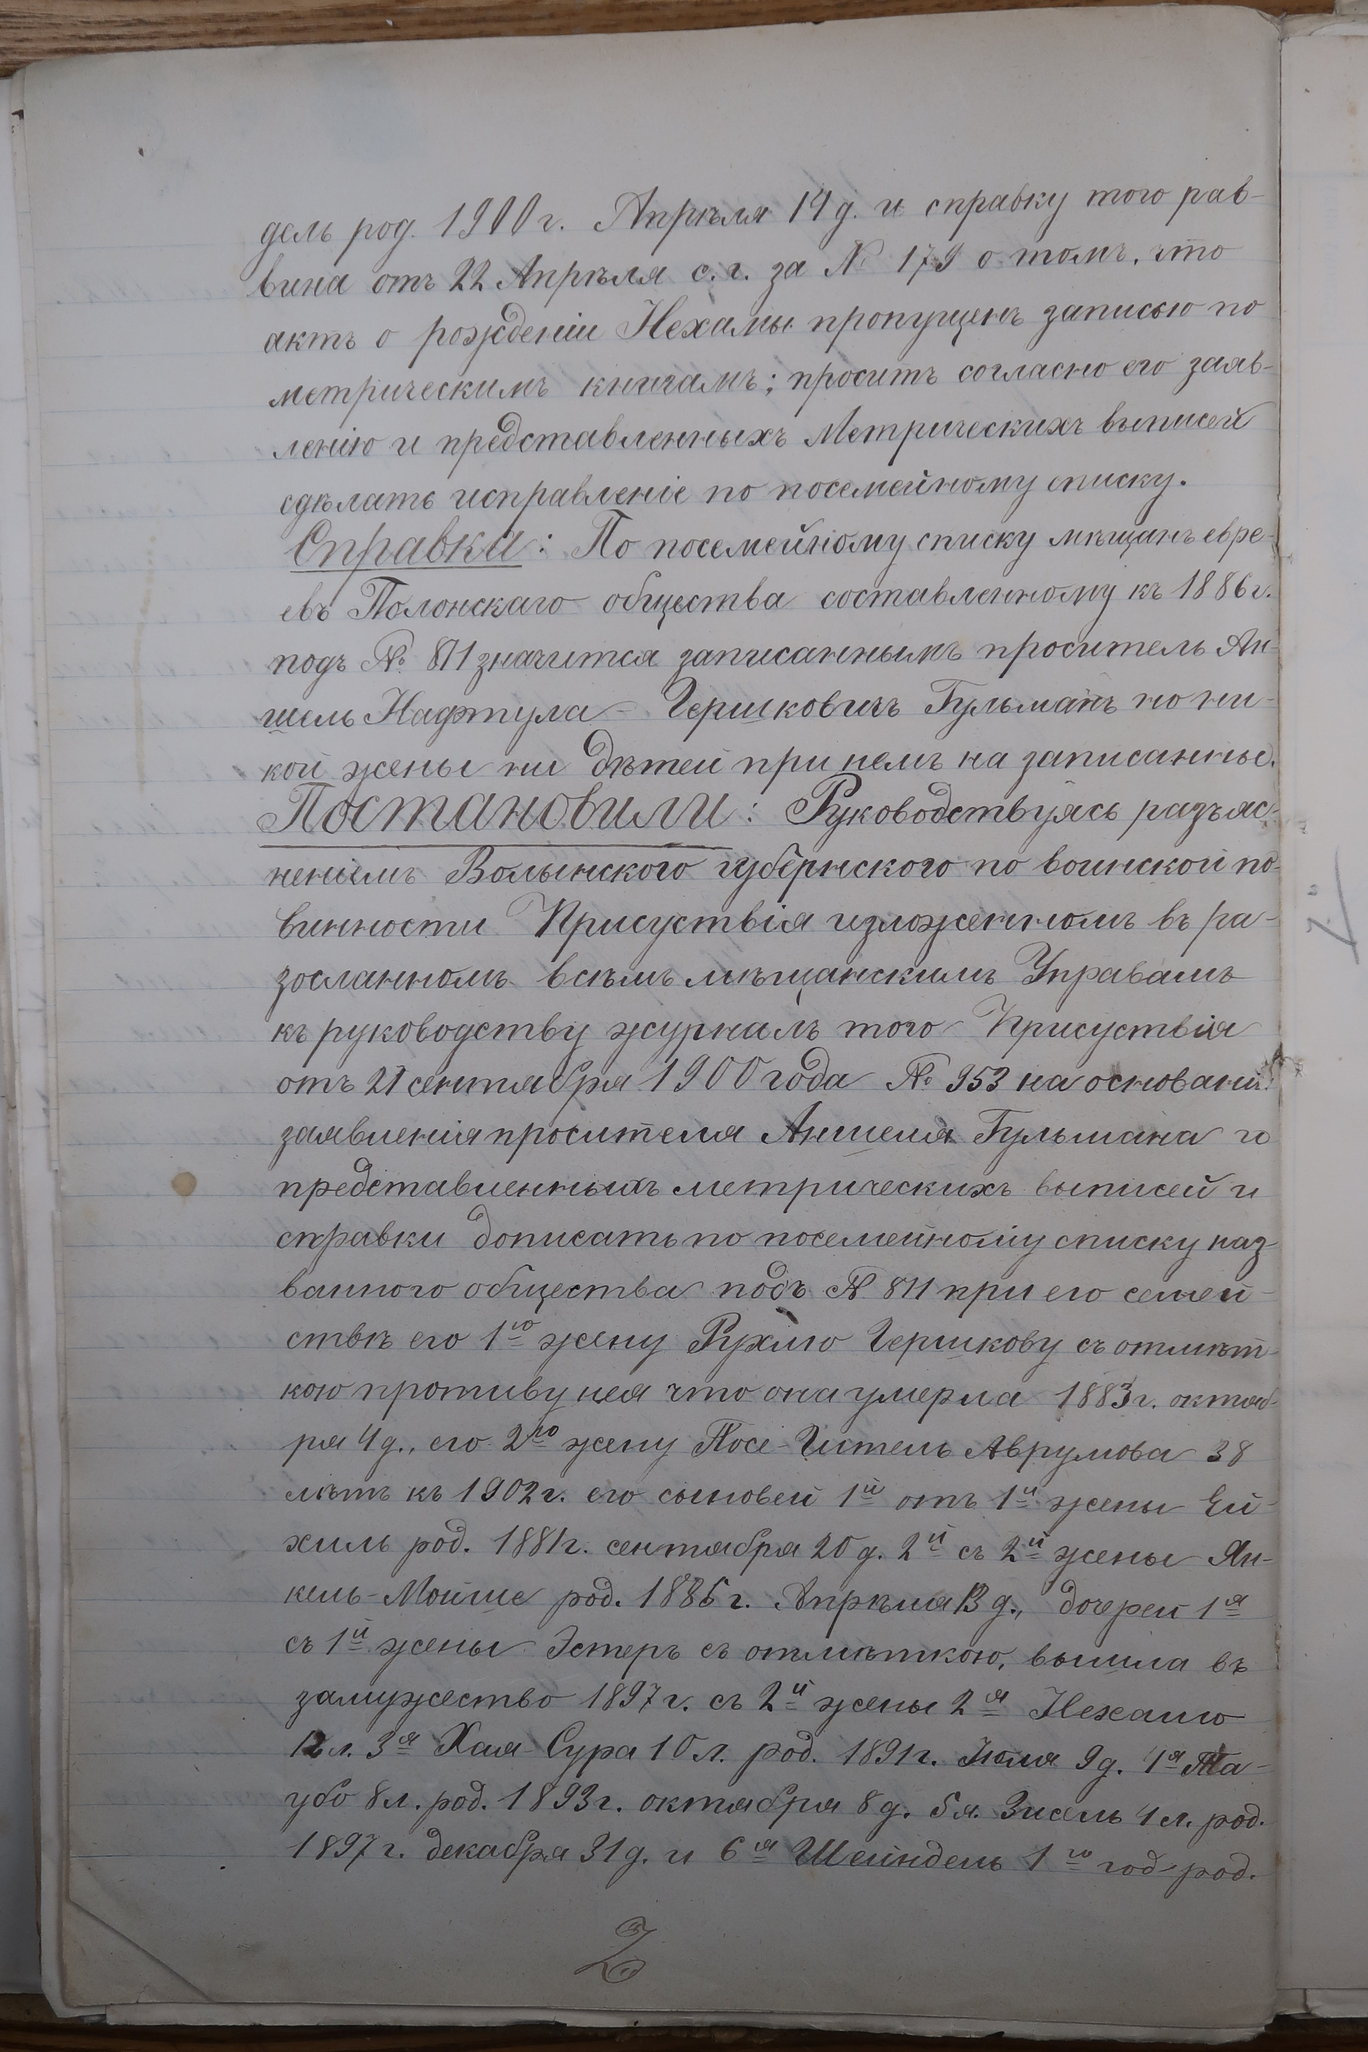 дель род. 1900 г. Апрѣля 14 д. и справку того рав-
вина отъ 22 Апрѣля с. г. за № 179 о томъ, что
актъ о рожденіи Нехамы пропущенъ записью по
метрическимъ книгамъ; проситъ согласно его заяв-
ленію и представленныхъ Метрическихъ выписей
сдѣлать исправленіе по посемейному списку.
Справка: По посемейному списку мѣщанъ евре-
евъ Полонскаго общества составленному къ 1886 г.
подъ № 811 значится записаннымъ проситель Ан-
шель Нафтула-Гершковичъ Гульманъ но ни-
кой жены ни дѣтей при немъ на записанные.
Постановили: Руководствуясь разъяс-
неніемъ Волынского губернского по воинской по-
винности Присуствія изложенномъ въ ра-
зосланномъ всѣмъ мѣщанскимъ Управамъ
къ руководству журналъ того Присуствія
отъ 21 сентября 1900 года № 953 на основаніи
заявленія просителя Аншеля Гульмана и
представленныхъ метрическихъ выписей и
справки дописать по посемейному списку наз-
ванного общества подъ № 811 при его семей-
ствѣ его 1ю жену Рухлю Гершкову съ отмѣт-
кою противу нея что она умерла 1883 г. октяб-
ря 4 д., его 2ю жену Гитель Аврумова 38
лѣтъ къ 1902 г. его сыновей 1й отъ 1й жены Ей-
хиль род. 1881 г. сентября 20 д. 2й съ 2й жены Ян-
кель-Мойше род. 1886 г. Апрѣля 13 д., дочерей 1я
съ 1й жены Эстеръ съ отмѣткою, вышла въ
замужество 1897 г. съ 2й жены 2я Нехамо
12 л. 3я Хая-Сура 10 л. род. 1891 г. Июля 9 д. 4я Та-
убо 8 л. род. 1893 г. октября 8 д. 5я Зисель 4 л. род.
1897 г. декабря 31 д. и 6я Шейндель 1го год род.
2